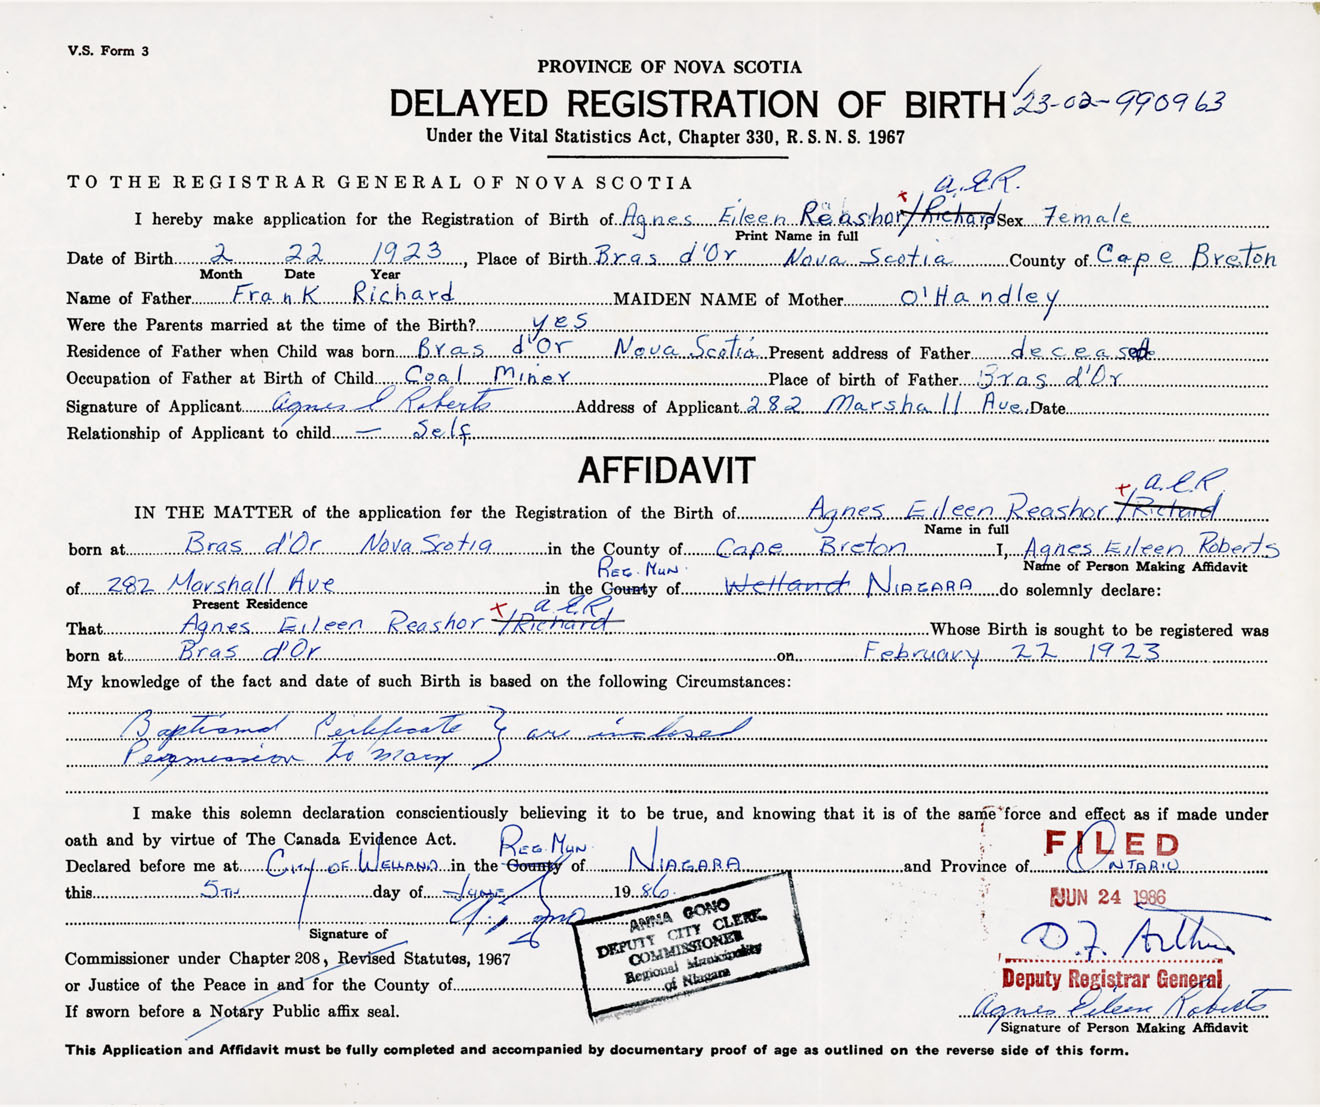 V.S. Form 3
PROVINCE OF NOVA SCOTIA
DELAYED REGISTRATION OF BIRTH 23-02-990963
Under the Vital Statistics Act, Chapter 330, R.S.N.S. 1967
TO THE REGISTRAR GENERAL OF NOVA SCOTIA
a.E.R.
I hereby make application for the Registration of Birth of Agnes Eileen Reashor /Richard, Sex Female
Print Name in full
Date of Birth 2 22 1923, Place of Birth Bras d'Or Nova Scotia County of Cape Breton
Month Date Year
Name of Father Frank Richard MAIDEN NAME of Mother O'Handley
Were the Parents married at the time of the Birth? yes
Residence of Father when Child was born Bras d'Or Nova Scotia Present address of Father deceased
Occupation of Father at Birth of Child Coal Miner Place of birth of Father Bras d'Or
Signature of Applicant Agnes E Roberts Address of Applicant 282 Marshall Ave. Date
Relationship of Applicant to child — Self
AFFIDAVIT
a.E.R
IN THE MATTER of the application for the Registration of the Birth of Agnes Eileen Reashor /Richard
Name in full
born at Bras d'Or Nova Scotia in the County of Cape Breton I, Agnes Eileen Roberts
Name of Person Making Affidavit
REG. MUN.
of 282 Marshall Ave in the County of Welland NIAGARA do solemnly declare:
Present Residence
a.E.R
That Agnes Eileen Reashor /Richard Whose Birth is sought to be registered was
born at Bras d'Or on February 22 1923
My knowledge of the fact and date of such Birth is based on the following Circumstances:
Baptismal Certificate } are inclosed
Permission to marry
I make this solemn declaration conscientiously believing it to be true, and knowing that it is of the same force and effect as if made under
oath and by virtue of The Canada Evidence Act.
REG. MUN
FILED
Declared before me at CITY OF WELLAND in the County of NIAGARA and Province of ONTARIO
this 5TH day of JUNE 1986
JUN 24 1986
ANNA GONO
DEPUTY CITY CLERK
COMMISSIONER
Regional Municipality
of Niagara
Signature of
D.F. Arthur
Commissioner under Chapter 208, Revised Statutes, 1967
Deputy Registrar General
or Justice of the Peace in and for the County of
Agnes Eileen Roberts
If sworn before a Notary Public affix seal.
Signature of Person Making Affidavit
This Application and Affidavit must be fully completed and accompanied by documentary proof of age as outlined on the reverse side of this form.